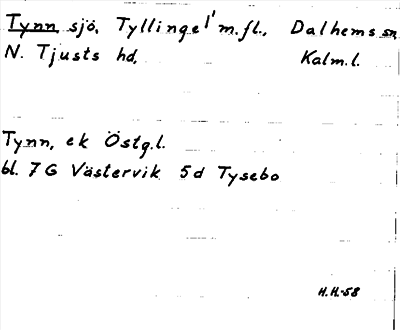 Tynn sjö, Tyllinge m.fl., Dalhems sn
N. Tjusts hd. Kalm.l.
Tynn, ek Östg.l.
bl. 7G Västervik 5d Tysebo
H.H.-58